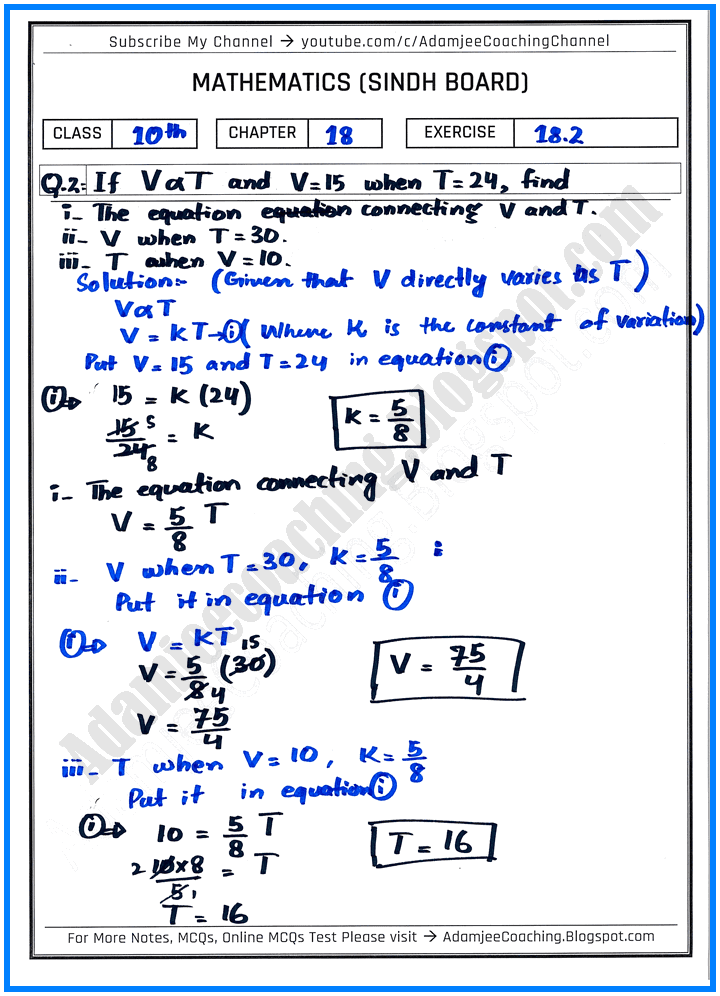 Subscribe My Channel → youtube.com/c/AdamjeeCoachingChannel
MATHEMATICS (SINDH BOARD)
CLASS 10th CHAPTER 18 EXERCISE 18.2
Q.2: If V∝T and V=15 when T=24, find
i- The equation equation connecting V and T.
ii- V when T=30.
iii- T when V=10.
Solution:- (Given that V directly varies as T)
V∝T
V = KT→(i) (Where K is the constant of variation)
Put V=15 and T=24 in equation (i)
(i)⇒ 15 = K (24)
15 5 / 24 8 = K
K = 5/8
i- The equation connecting V and T
V = 5/8 T
ii- V when T=30, K=5/8 :
Put it in equation (i)
(i)⇒ V = KT
V = 5/8 4 (30) 15
V = 75/4
V = 75/4
iii- T when V=10, K=5/8
Put it in equation (i)
(i)⇒ 10 = 5/8 T
2 10×8 / 5 1 = T
T = 16
T = 16
For More Notes, MCQs, Online MCQs Test Please visit → AdamjeeCoaching.Blogspot.com
Adamjeecoaching.blogspot.com